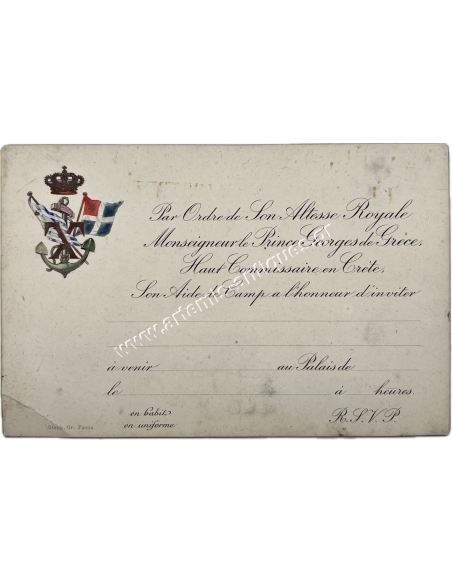 Par Ordre de Son Altesse Royale
Monseigneur le Prince Georges de Grèce,
Haut Commissaire en Crète,
Son Aide de Camp a l'honneur d'inviter
à venir au Palais de
le à heures.
en habit
en uniforme
R.S.V.P.
Stern. Gr. Paris.
www.artemis-antiques.gr